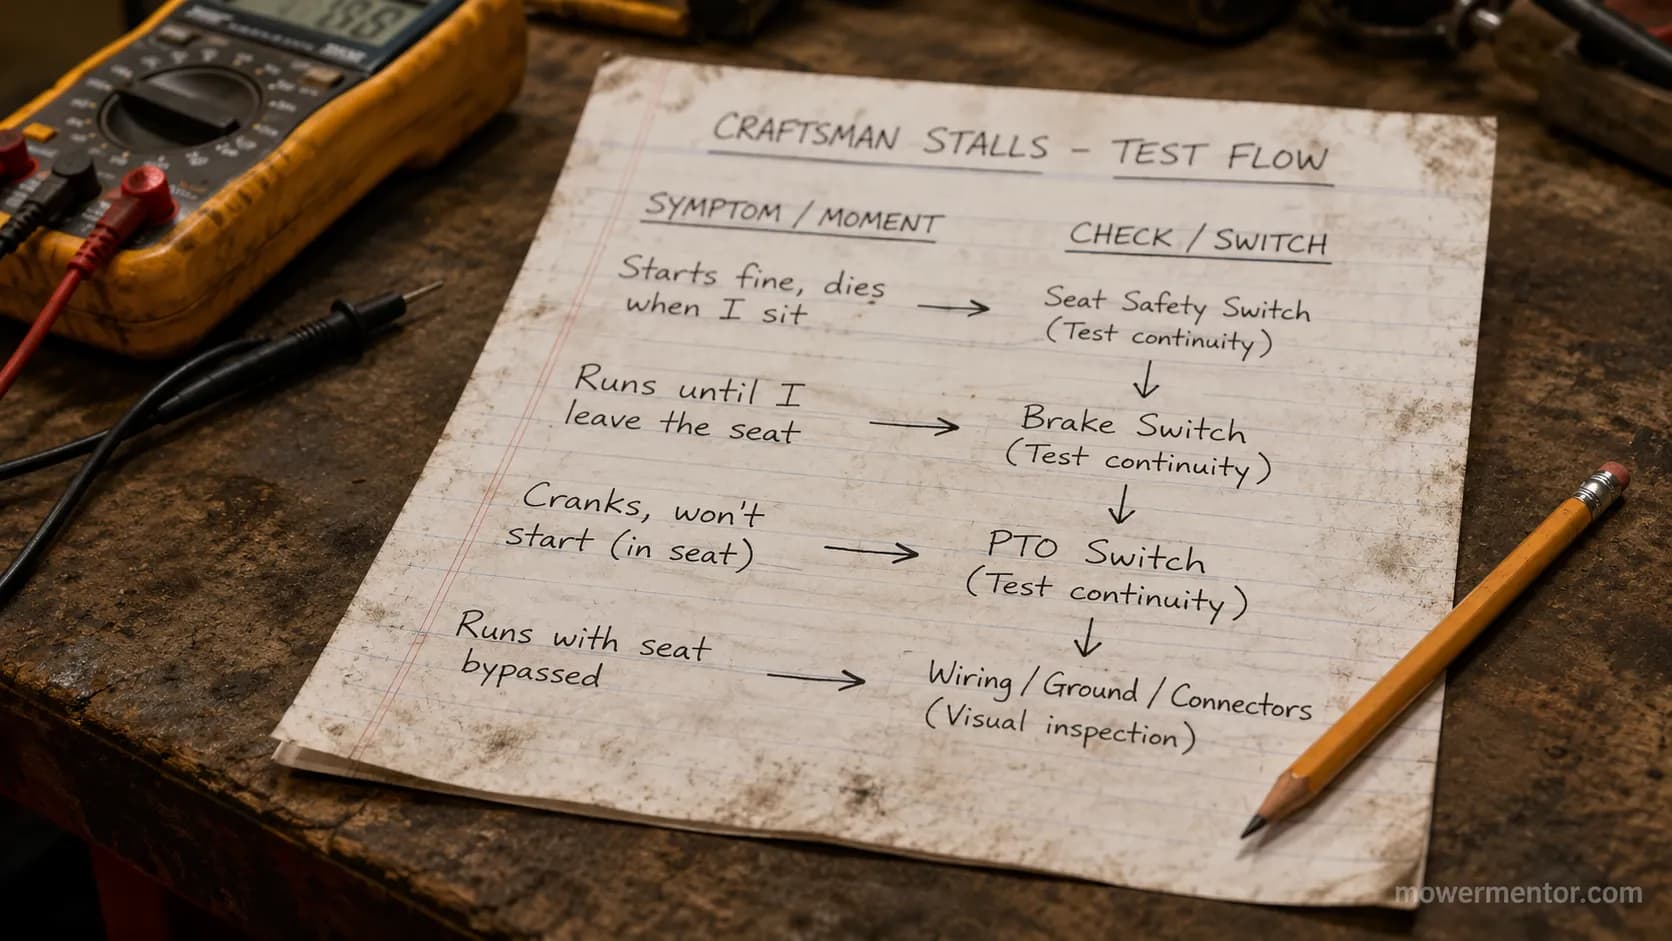 CRAFTSMAN STALLS – TEST FLOW
SYMPTOM / MOMENT
CHECK / SWITCH
Starts fine, dies
when I sit
→
Seat Safety Switch
(Test continuity)
↓
Runs until I
leave the seat
→
Brake Switch
(Test continuity)
↓
Cranks, won't
start (in seat)
→
PTO Switch
(Test continuity)
↓
Runs with seat
bypassed
→
Wiring / Ground / Connectors
(Visual inspection)
mowermentor.com